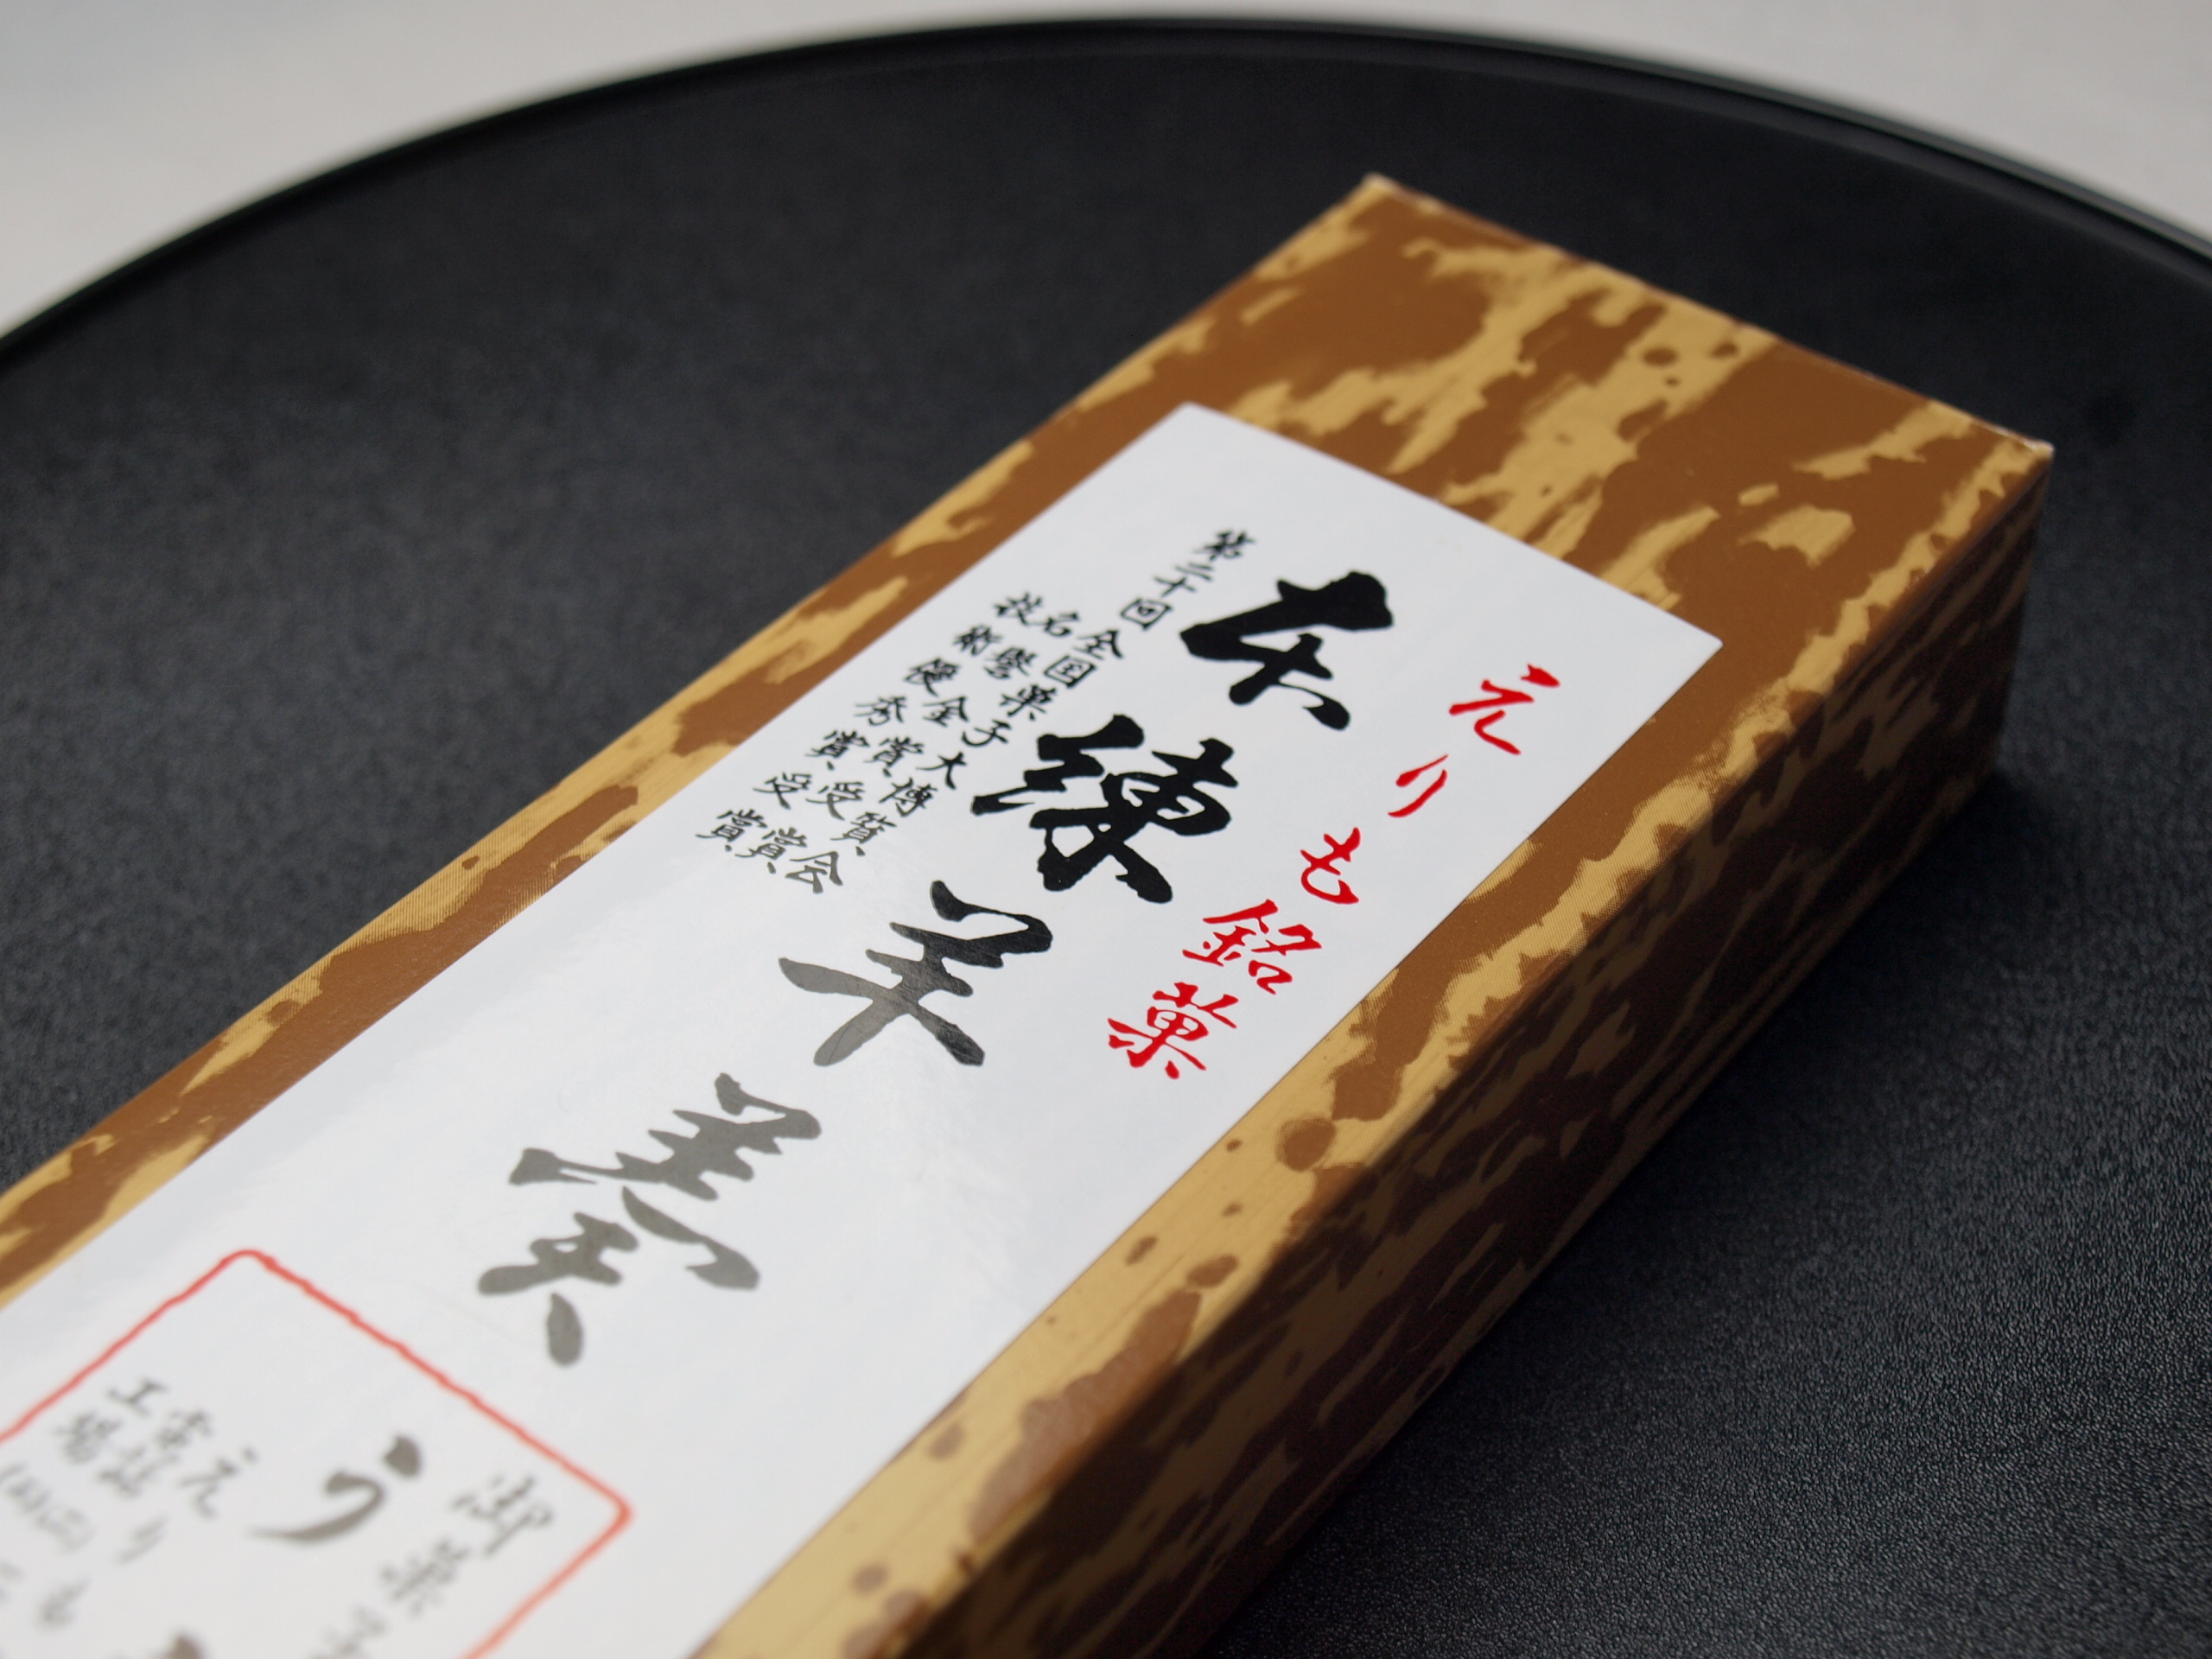 えりも銘菓
本練羊羹
第二十回全国菓子大博覧会
名譽金賞受賞
技術優秀賞受賞
御菓子
う
えりも
電話
工場